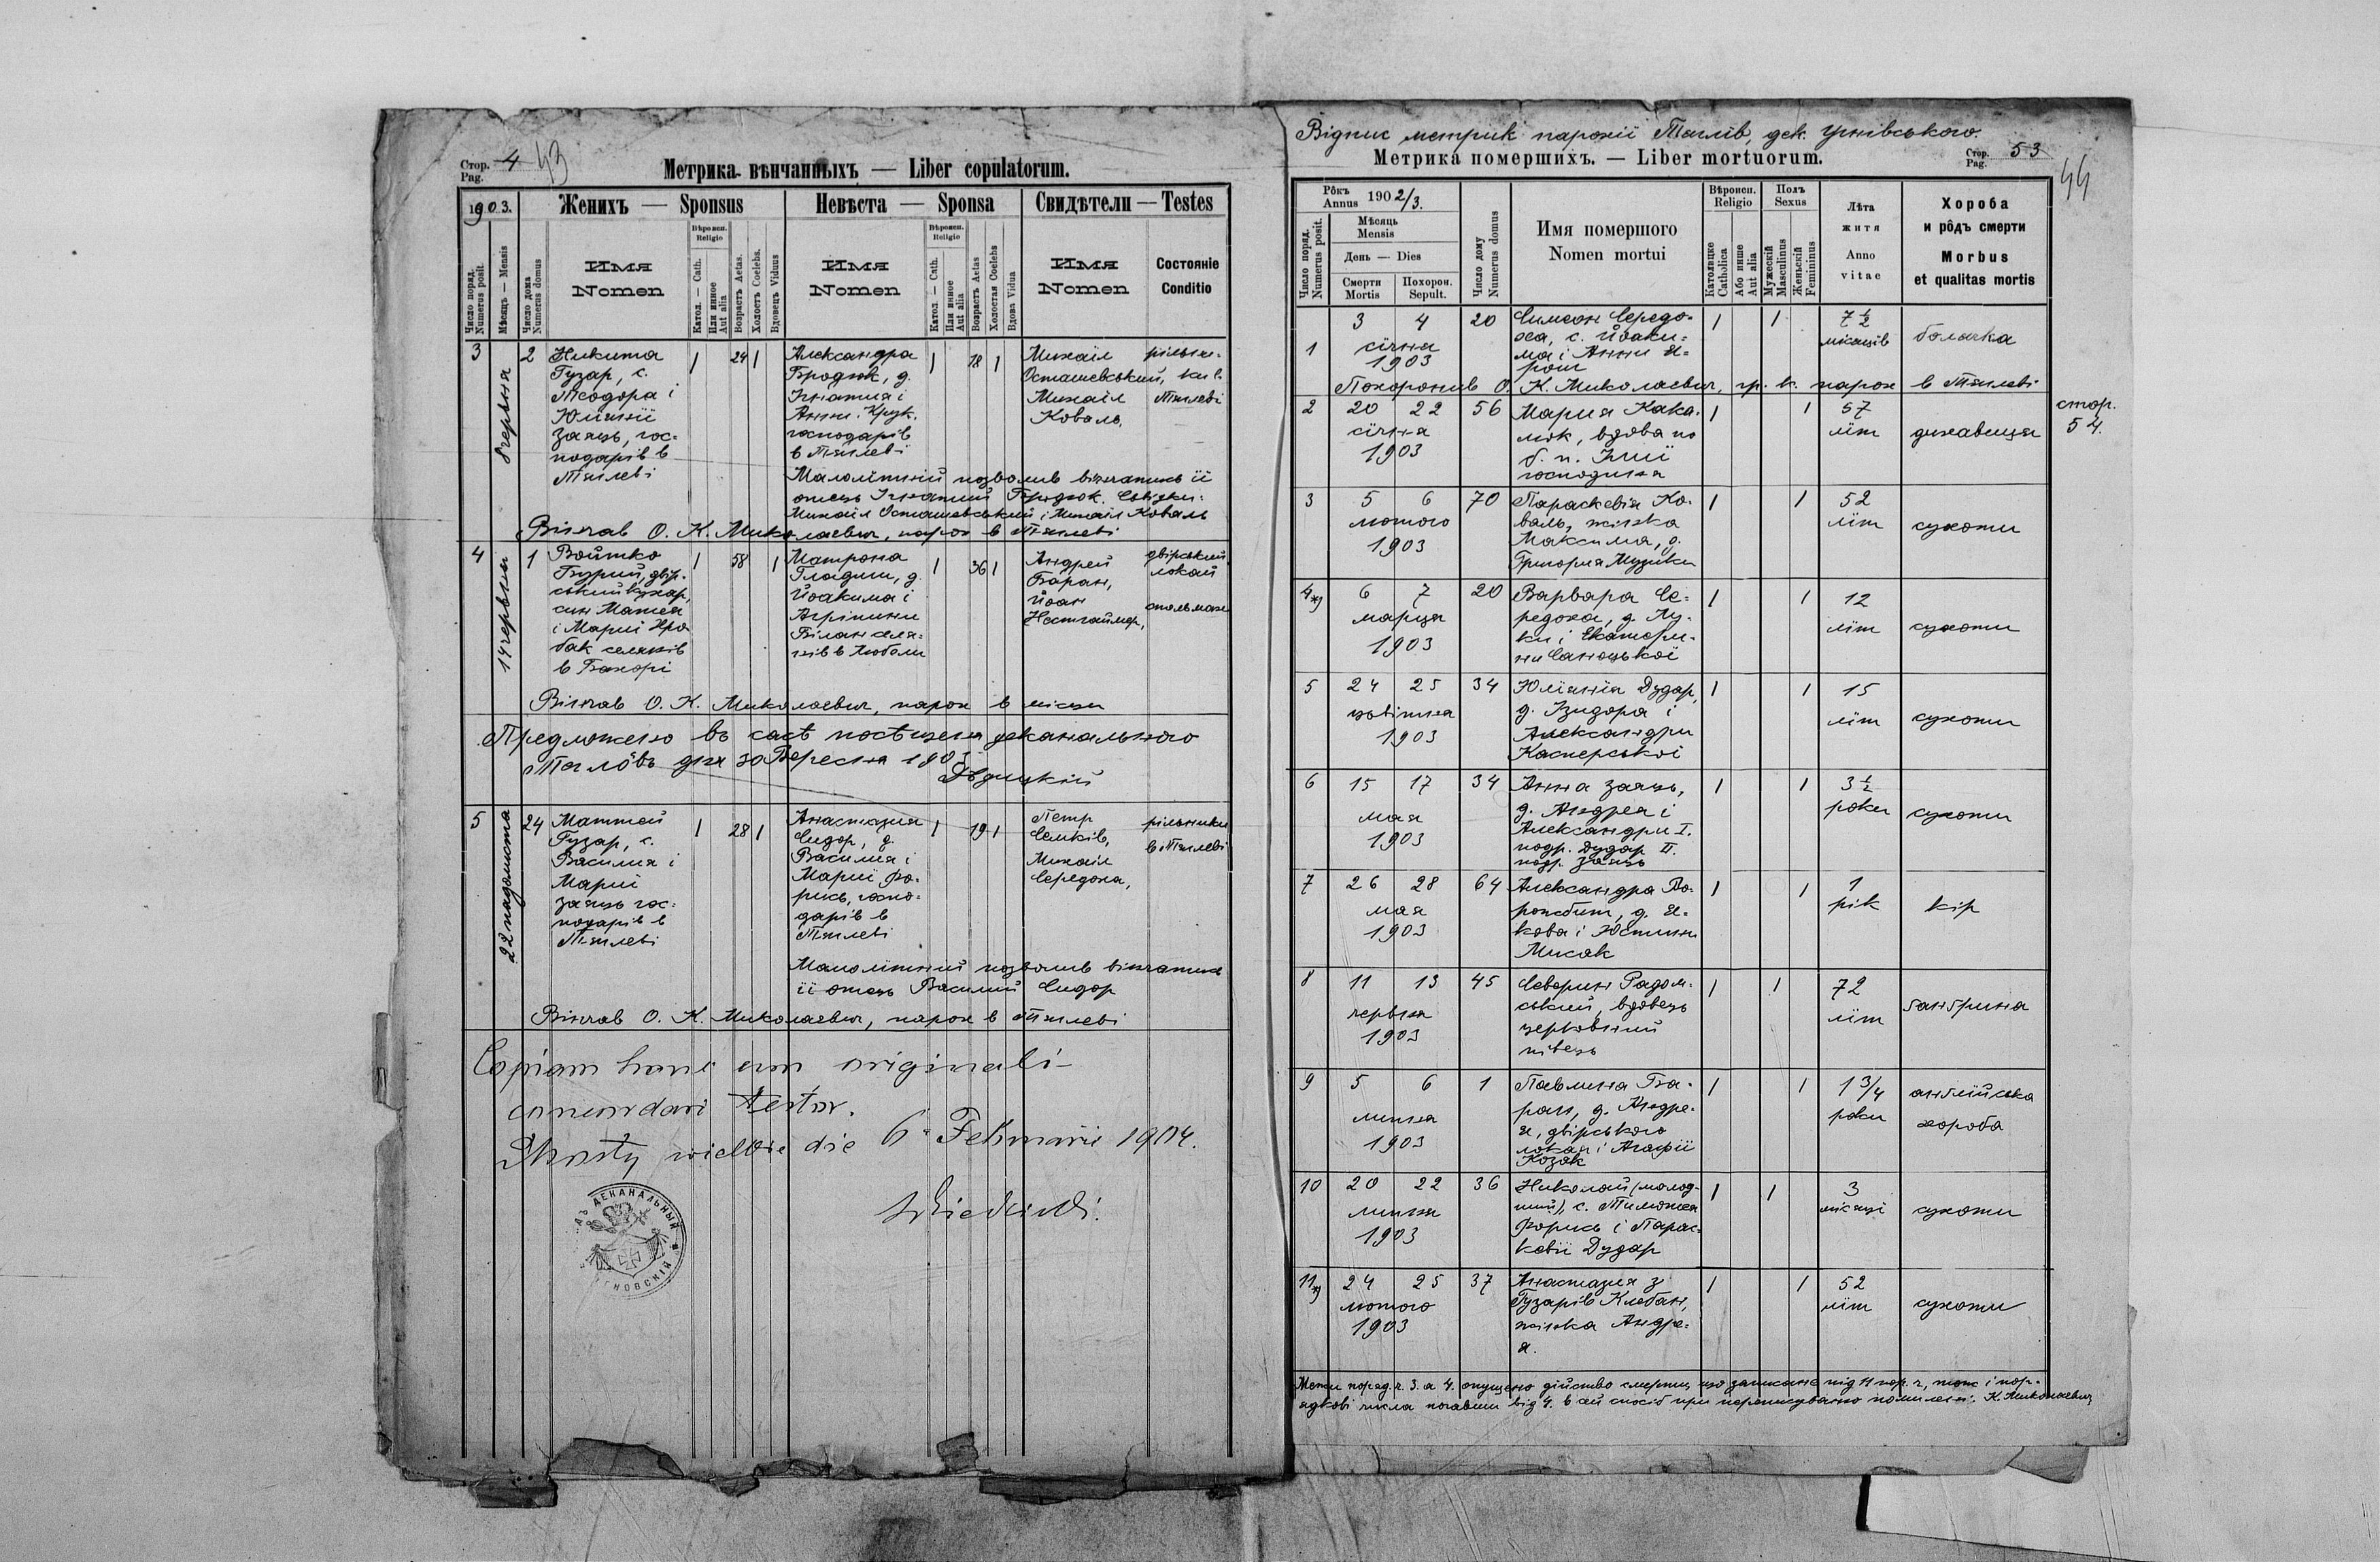 Стор. 4 43
Pag.
Метрика вѣнчанныхъ — Liber copulatorum.
1903.
Женихъ — Sponsus
Невѣста — Sponsa
Свидѣтели — Testes
Число поряд. Numerus posit.
Мѣсяць — Mensis
Число дома Numerus domus
Имя Nomen
Вѣроисп. Religio
Катол. — Cath.
Или инное Aut alia
Возрастъ Aetas.
Холостъ Coelebs.
Вдовець Viduus
Имя Nomen
Вѣроисп. Religio
Катол. — Cath.
Или инное Aut alia
Возрастъ Aetas
Холостая Coelebs
Вдова Vidua
Имя Nomen
Состояніе Conditio
3
8 червня
2
Никита
Гузар, с.
Теодора і
Юлїянії
Заяць, гос-
подарів в
Тяглеві
1 24 1
Александра
Бродюк, д.
Ігнатия і
Анни Крук,
господарів
в Тяглеві
1 18 1
Михаіл
Осташевський,
Михаіл
Коваль,
рільни-
ки в
Тяглеві
Малолїтній позволив вінчатись її
отець Ігнатий Бродюк. Сьвідки:
Михаіл Осташевський і Михаіл Коваль
Вінчав О. К. Миколаєвич, парох в Тяглеві
4
14 червня
1
Войтко
Бурий, двір-
ський кухар,
син Матея
і Мариї Хро
бак селянів
в Бахорі
1 58 1
Матрона
Гладиш, д.
Йоакима і
Агрипини
Білан селя-
нів в Любели
1 36 1
Андрей
Баран,
Йоан
двірський
локай
стельмах
Вінчав О. К. Миколаєвич, парох в місци
Предложено въ часѣ посѣщенія деканального
Тяглôвъ дня 30 Вересня 1903
5
22 падолиста
24
Маттей
Гузар, с.
Василия і
Мариї
Заяць гос-
подарів в
Тяглеві
1 28 1
Анастазия
Сидор, д.
Василия і
Мариї Фо-
рись, госпо-
дарів в
Тяглеві
1 19 1
Петр
Семків,
Михаіл
Середоха,
рільники
в Тяглеві
Малолїтний позволив вінчатись
її отець Василий Сидор
Вінчав О. К. Миколаєвич, парох в Тяглеві
Copiam hanc cum originali
concordari testor.
die 6 Februarii 1904.
ДЕКАНАЛЬНЫЙ
Відпис метрик парохії Тяглів, дек. Угнівського.
Метрика помершихъ. — Liber mortuorum.
Стор. 53
Pag.
44
Рôкъ Annus 1902/3.
Число поряд. Numerus posit.
Мѣсяць Mensis
День — Dies
Смерти Mortis
Похорон. Sepult.
Число дому Numerus domus
Имя помершого
Nomen mortui
Вѣроисп. Religio
Католицке Catholica
Або инше Aut alia
Полъ Sexus
Мужескій Masculinus
Женьскій Femininus
Лѣта житя
Anno vitae
Хороба и рôдъ смерти
Morbus et qualitas mortis
1
3 4
сїчня
1903
20
Симеон Середо-
ха, с. Йоаки-
ма і Анни Я-
рош
1 1
7 1/2
місяців
болячка
Похоронив О. К. Миколаєвич, гр. к. парох в Тяглеві
2
20 22
сїчня
1903
56
Мария Кака-
люк, вдова по
б. п. Ілиї
господиня
1 1
57
лїт
духавиця
стор.
54.
3
5 6
лютого
1903
70
Параскевія Ко-
валь, жінка
Максима, д.
Григория Музики
1 1
52
лїт
сухоти
4 *)
6 7
марця
1903
20
Варвара Се-
редоха, д. Лу-
ки і Екатери-
ни Саноцької
1 1
12
лїт
сухоти
5
24 25
цьвітня
1903
34
Юлїянія Дудар,
д. Ізидора і
Александри
Касперської
1 1
15
лїт
сухоти
6
15 17
мая
1903
34
Анна Заяць,
д. Андрея і
Александри I.
подр. Дудар II.
подр. Заяць
1 1
3 1/2
роки
сухоти
7
26 28
мая
1903
64
Александра Во-
рожбит, д. Я-
кова і Юстини
Мисяк
1 1
1
рік
кір
8
11 13
червня
1903
45
Северин Радом-
ський, вдовець
церковний
півець
1 1
72
лїт
ґанґрина
9
5 6
липня
1903
1
Павлина Ба-
ран, д. Андре-
я, двірського
локая і Агафії
Козак
1 1
1 3/4
роки
анґлїйська
хороба
10
20 22
липня
1903
36
Николай (молод-
ший), с. Тимотея
Форись і Парас-
ковії Дудар
1 1
3
місяці
сухоти
11 *)
24 25
лютого
1903
37
Анастазия з
Гузарів Клебан,
жінка Андре-
я.
1 1
52
лїт
сухоти
Межи поряд. ч. 3. а 4. опущено дїйство смерти, що записане під 11 пор. ч., тож і пор-
ядкові числа почавши від 4. в сей спосіб при переписуваню помилені. К. Миколаєвич